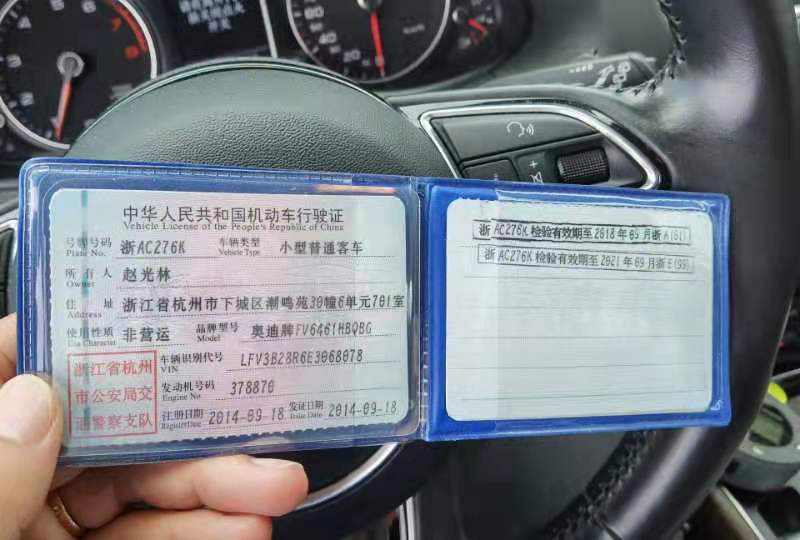 中华人民共和国机动车行驶证
Vehicle License of the People's Republic of China
号牌号码 浙AC276K 车辆类型 小型普通客车
Plate No. Vehicle Type
所有人 赵光林
Owner
住址 浙江省杭州市下城区潮鸣苑30幢6单元701室
Address
使用性质 非营运 品牌型号 奥迪牌FV6461HBQBG
Use Character Model
浙江省杭州
市公安局交
通警察支队
车辆识别代号 LFV3B28R6E3068078
VIN
发动机号码 378870
Engine No.
注册日期 2014-09-18 发证日期 2014-09-18
Register Date Issue Date
浙AC276K 检验有效期至2018年09月浙A(61)
浙AC276K 检验有效期至2021年09月浙E(99)